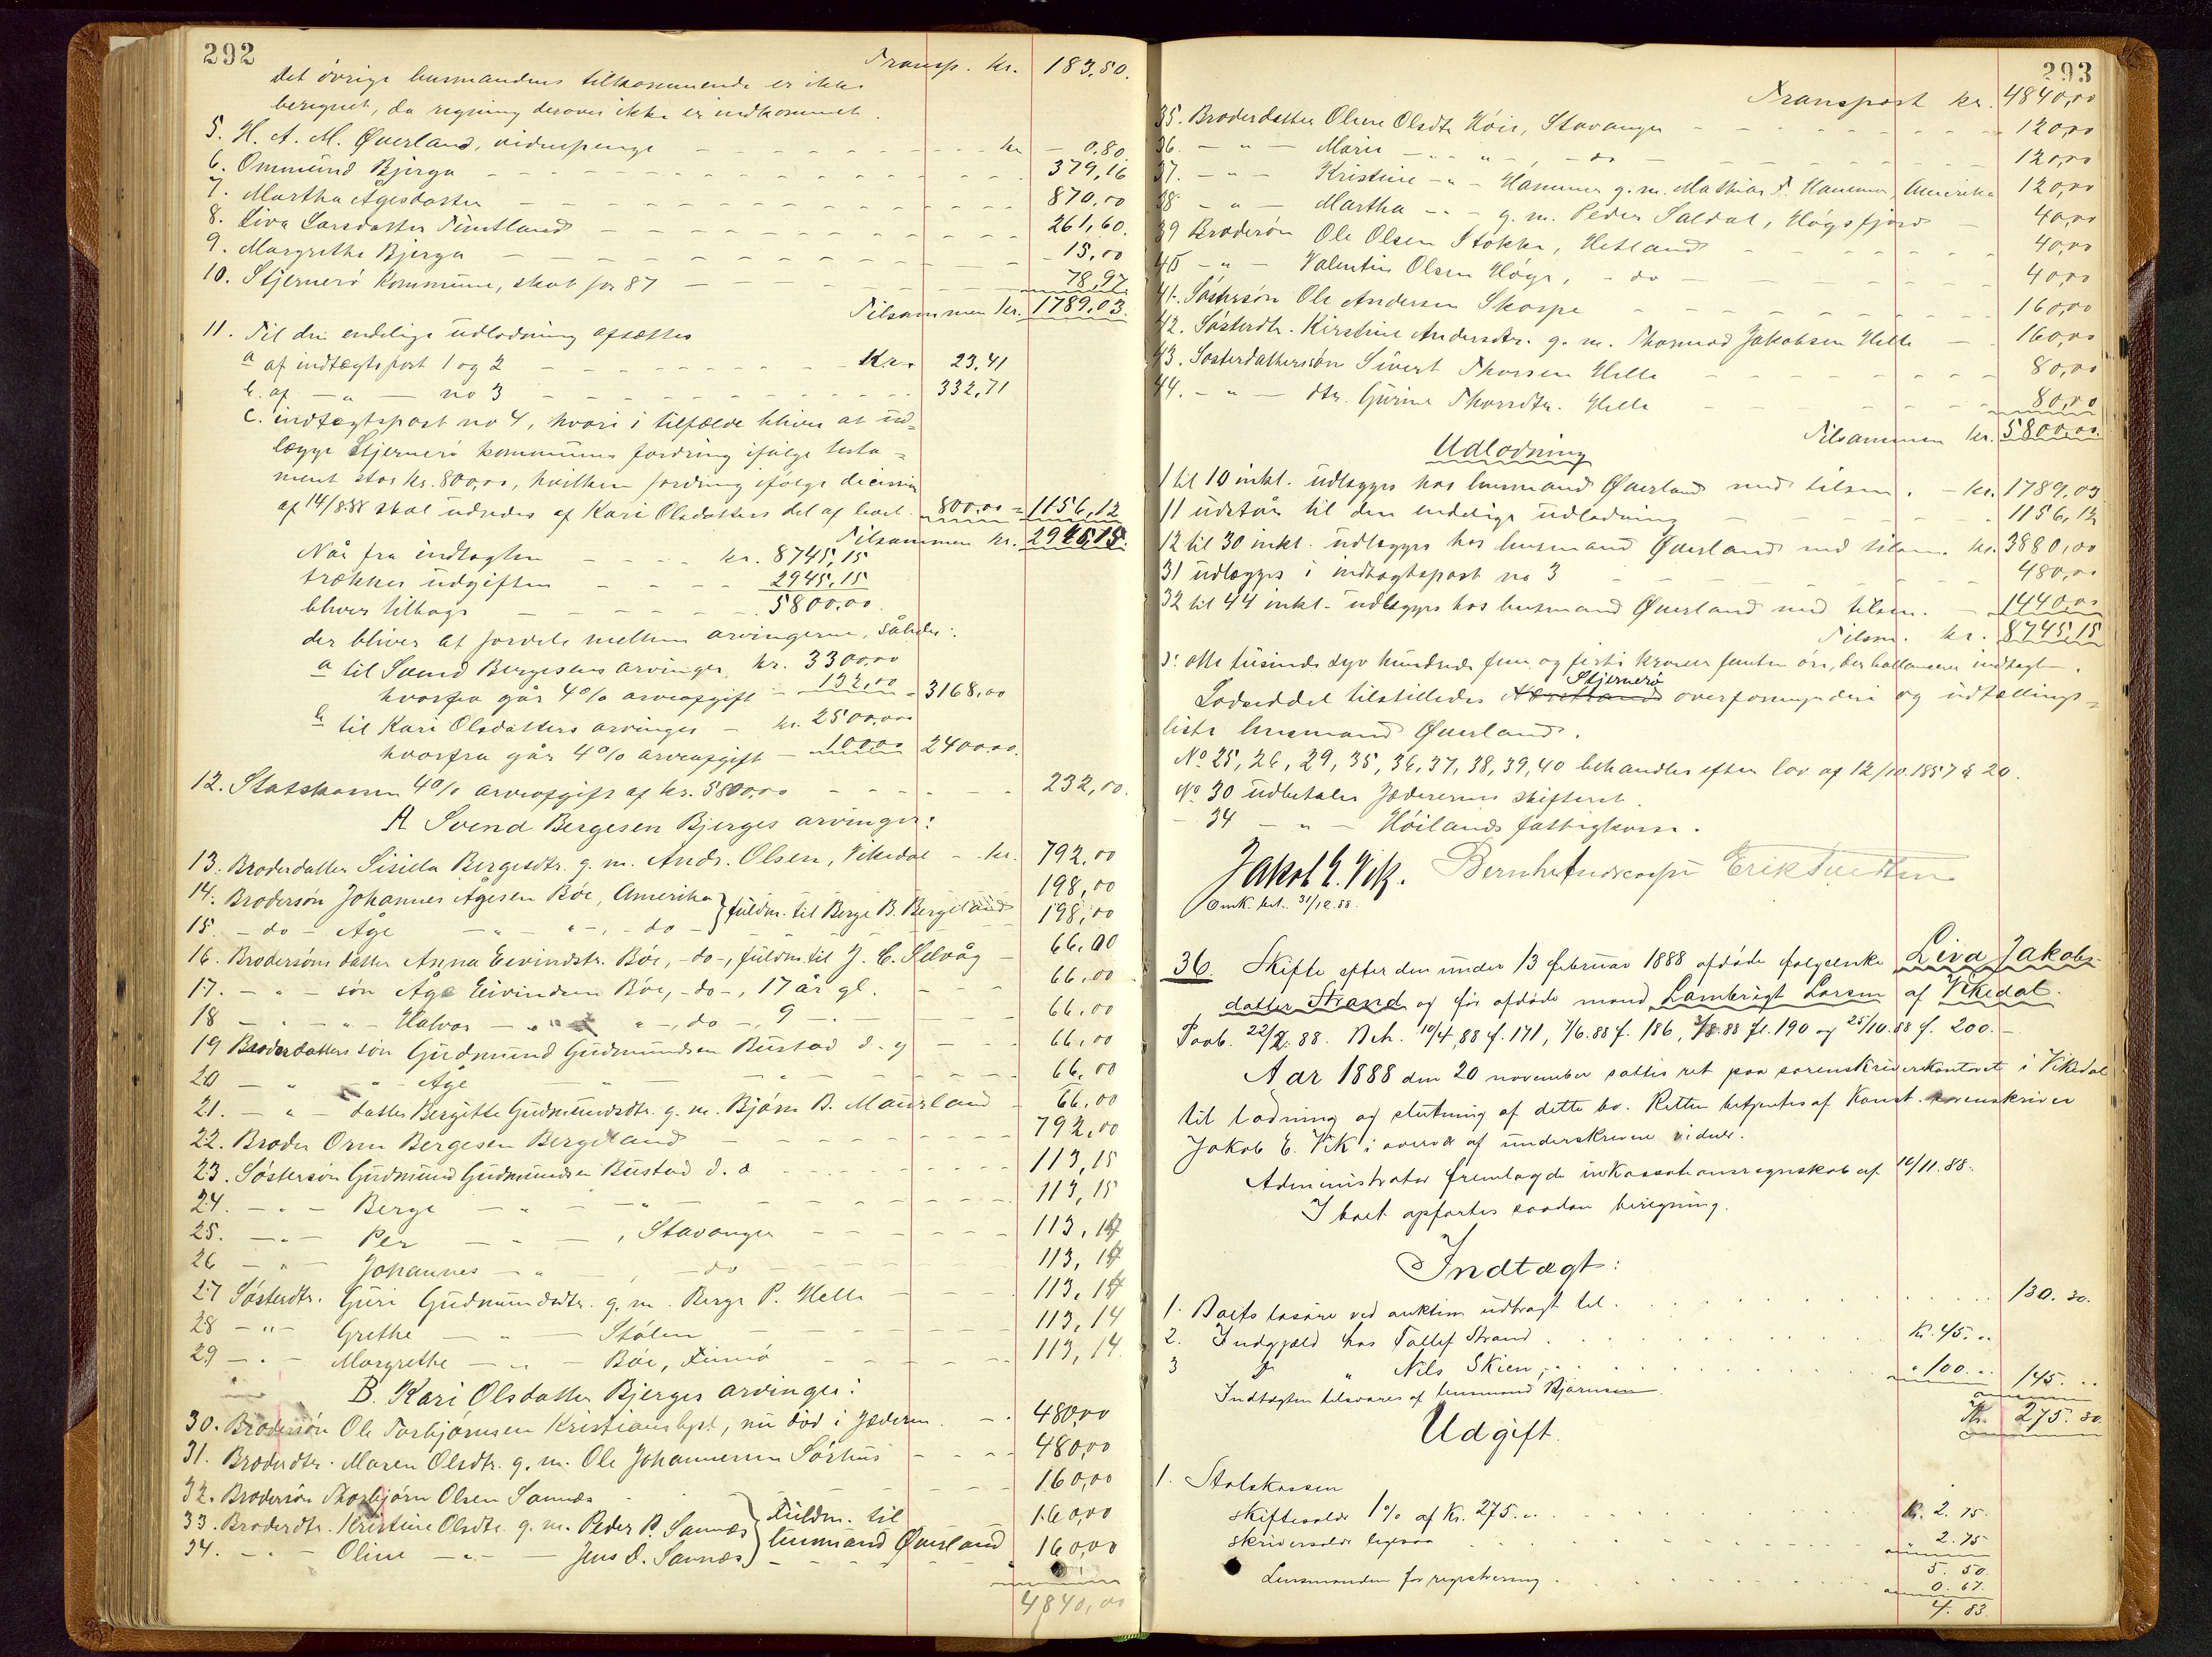 292
Transp. kr. 183,80.
Det övrige lensmandens tilkommende er ikke
beregnet, da regning derover ikke er indkommet.
5. H. A. M. Øverland, vidnepenge - - - kr - 0,80
6. Ommund Bjerga - - - 379,16
7. Martha Ågesdatter - - - 870,00
8. Liva Larsdatter Timtland - - - 261,60.
9. Margrethe Bjerga - - - 15,00
10. Stjernerö Kommune, skat for 87 - - - 78,97.
Tilsammen kr. 1789,03.
11. Til den endelige udlodning afsættes
a af indtægtspost 1 og 2 - - - Kr. 23,41
b. af - " - no 3 - - - 332,71
c. indtægtspost no 4, hvori i tilfælde bliver at ud=
lægge Stjernerö kommunes fordring ifölge testa=
ment stor kr. 800,00, hvilken fordring ifölge decision
af 14/8 88 skal udredes af Kari Olsdatters del af boet. 800.00 = 1156,12
Tilsammen kr. 2945,15.
Når fra indtægten - - - kr. 8745,15
trækkes udgiften - - - 2945,15
bliver tilbage - - - 5800,00.
der bliver at fordele mellem arvingerne, således:
a til Svend Bergesens arvinger kr. 3300,00
hvorfra går 4% arveafgift - 132,00 = 3168,00
b til Kari Olsdatters arvinger - kr. 2500,00
hvorfra går 4% arveafgift - 100,00 2400,00.
12. Statskassen 4% arveafgift af kr. 5800,00 - - - 232,00.
A Svend Bergesen Bjerges arvinger:
13. Broderdatter Sisilla Bergesdtr. g. m. Andr. Olsen, Vikedal - kr. 792,00
14. Brodersön Johannes Ågesen Böe, Amerika } fuldm. til Berge B. Bergeland 198,00
15. - do - Åge - " - " -, - do - 198,00
16. Brodersöns datter Anna Eivindstr. Böe, - do -, fuldm. til J. C. Selvåg - 66,00
17. - " - sön Åge Eivindsen Böe, - do -, 17 år gl. - - - 66,00
18 - " - " - Halvor - " - " -, do -, 9 - - - 66,00
19 Broderdatters sön Gudmund Gudmundsen Bustad d. y - - - 66,00
20 - " - " - Åge - " - " - - - 66,00
21. - " - datter Bergitte Gudmundsdtr. g. m. Björn B. Mausland - 66,00
22. Broder Orm Bergesen Bergeland - - - 792,00
23. Söstersön Gudmund Gudmundsen Bustad d. æ - - - 113,15
24. - " - Berge - " - " - - - 113,15
25. - " - Per - " - , Stavanger - - - 113,14
26 - " - Johannes - " - , - do - - - 113,14
27 Söstersdtr. Guri Gudmundsdtr. g. m. Berge P. Helle - 113,14
28 - " - Grethe - " - Stölen - - - 113,14
29 - " - Margrethe - " - Böe, Finnö - - - 113,14.
B. Kari Olsdatter Bjerges arvinger:
30. Brodersön Ole Torbjörnsen Kristianslyst, nu död i Jæderen. - - 480,00
31. Broderdtr. Maren Olsdtr. g. m. Ole Johannesen Sörhus - - - 480,00
32. Brodersön Thorbjörn Olsen Sannes - - - 160,00
33. Broderdtr. Kristine Olsdtr. g. m. Peder P. Sannes } Fuldm. til 160,00
34. - " - Oline - " - Jens O. Sannes } lensmand Øverland 160,00
4840,00
293
Transport kr. 4840,00
35. Broderdatter Olene Olsdtr Höie, Stavanger - - - 120,00
36. - " - Marie - " - " -, - do - - - 120,00
37. - " - Kristine - " - Hammer g. m. Mathias T. Hammer, Amerika 120,00
38 - " - Martha - " - g. m. Peder Saldal, Högsfjord - 40,00
39 Brodersön Ole Olsen Stokke, Hetland - - - 40,00
40 - " - Valentin Olsen Höge, - do - - - 40,00
41. Söstersön Ole Andersen Skorpe - - - 160,00
42. Sösterdtr. Kirstine Andersdtr. g. m. Thormod Jakobsen Helle - 160,00
43. Sösterdatterssön Sivert Thorsen Helle - - - 80,00
44. - " - dtr. Gurine Thorsdtr. Helle - - - 80,00
Tilsammen kr. 5800,00.
Udlodning
1 til 10 inkl. udlægges hos lensmand Øverland med tilsm. - kr. 1789,03
11 udstår til den endelige udlodning - - - 1156,12
12 til 30 inkl. udlægges hos lensmand Øverland med tilsm. kr. 3880,00
31 udlægges i indtægtspost no 3 - - - 480,00
32 til 44 inkl. udlægges hos lensmand Øverland med tilsm. - 1440,00
Tilsm. kr. 8745,15
ɔ: otte tusinde syv hundrede fem og firti kroner femten öre, der ballancerer indtægten.
Stjernerö
Lodseddel tilstilledes overformynderi og udtællings=
liste lensmand Øverland.
No 25, 26, 29, 35, 36, 37, 38, 39, 40 behandles efter lov af 12/10. 1857 § 20.
No 30 udbetales Jæderens skifteret.
- 34 - " - Höilands fattigkasse.
Jakob E. Vik.
Omk. bet. 31/12. 88.
36. Skifte efter den under 13 februar 1888 afdöde fölgeenke Liva Jakobs-
datter Strand og för afdöde mand Lambrigt Larsen af Vikedal.
Paab. 22/2. 88. Beh. 10/4. 88 f. 171, 7/6. 88 f. 186, 3/8. 88 f. 190 og 25/10. 88 f. 200. -
Aar 1888 den 20 november sattes ret paa sorenskriverkontoret i Vikedal
til lodning og slutning af dette bo. Retten betjentes af Konst. sorenskriver
Jakob E. Vik i overvær af underskrevne vidner.
Administrator fremlagde inkassationsregnskab af 10/11. 88.
I boet opförtes saadan beregning.
Indtægt:
1. Boets lösöre ved auktion udbragt til . . . 130. 30.
2. Indgjæld hos Tollef Strand . . . Kr. 45. ..
3 " " Nils Skien . . . " 100. .. 145. ..
Indtægten tilsvares af lensmand Bjørnsen. Kr. 275. 30
Udgift.
1. Statskassen
skiftesalær 1% af Kr. 275. .. . . . Kr. 2. 75.
skriversalær ligesaa . . . 2. 75
5. 50.
Lensmanden for registrering . . . 0. 67.
4. 83.